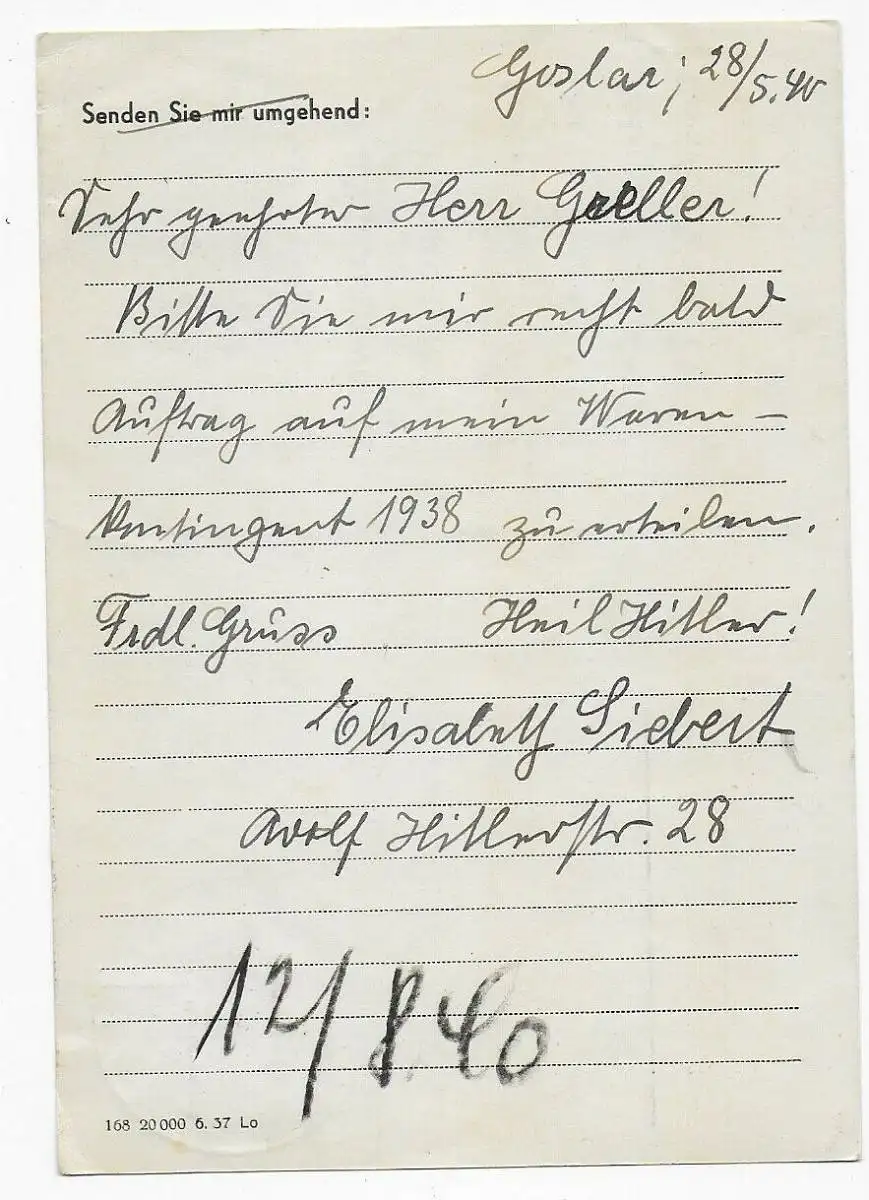 Goslar, 28/5.40
Senden Sie mir umgehend:
Sehr geehrter Herr Greller!
Bitte Sie mir recht bald
Auftrag auf mein Waren-
kontingent 1938 zu erteilen.
Frdl. Gruss Heil Hitler!
Elisabeth Siebert
Adolf Hitlerstr. 28
12/8.40
168 20000 6. 37 Lo